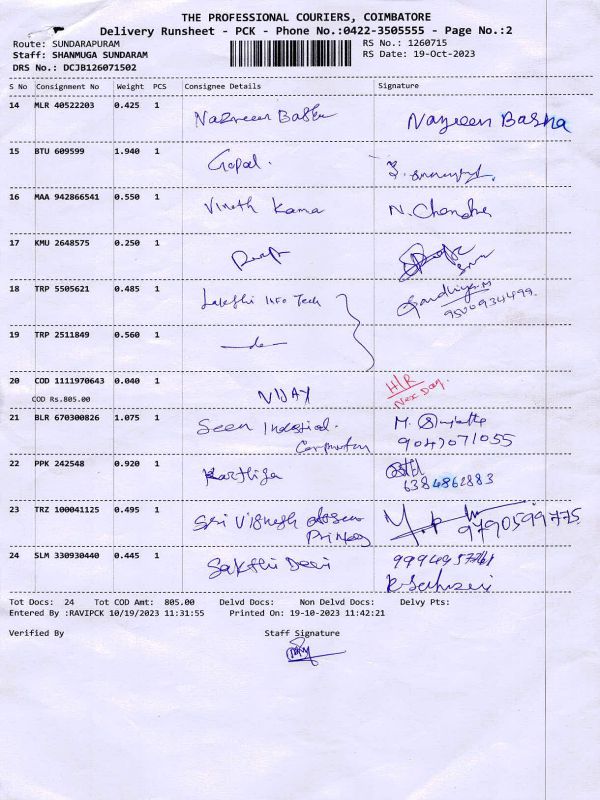 THE PROFESSIONAL COURIERS, COIMBATORE
Delivery Runsheet - PCK - Phone No.:0422-3505555 - Page No.:2
Route: SUNDARAPURAM RS No.: 1260715
Staff: SHANMUGA SUNDARAM RS Date: 19-Oct-2023
DRS No.: DCJB126071502
S No Consignment No Weight PCS Consignee Details Signature
14 MLR 40522203 0.425 1 Nazreen Nazreen Basha
15 BTU 609599 1.940 1 Gopal.
16 MAA 942866541 0.550 1 Vineth Kama N. Chandra
17 KMU 2648575 0.250 1
18 TRP 5505621 0.485 1 Lakshi Info Tech Sandhiya.M
9500934499.
19 TRP 2511849 0.560 1
20 COD 1111970643 0.040 1 VIJAY H/R
Nex Day.
COD Rs.805.00
21 BLR 670300826 1.075 1 Seen Industrial. M.
9047071055
22 PPK 242548 0.920 1 Karthiga
6384862883
23 TRZ 100041125 0.495 1 Sri Vignesh 9790599775
24 SLM 330930440 0.445 1 Sakthi Devi
Tot Docs: 24 Tot COD Amt: 805.00 Delvd Docs: Non Delvd Docs: Delvy Pts:
Entered By :RAVIPCK 10/19/2023 11:31:55 Printed On: 19-10-2023 11:42:21
Verified By Staff Signature